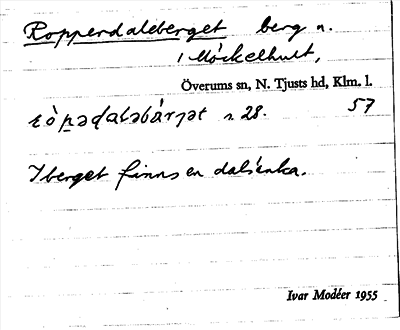 Ropperdaleberget berg n.
i Möckelhult,
Överums sn, N. Tjusts hd, Klm. l.
n 28. 57
I berget finns en dalsänka.
Ivar Modéer 1955